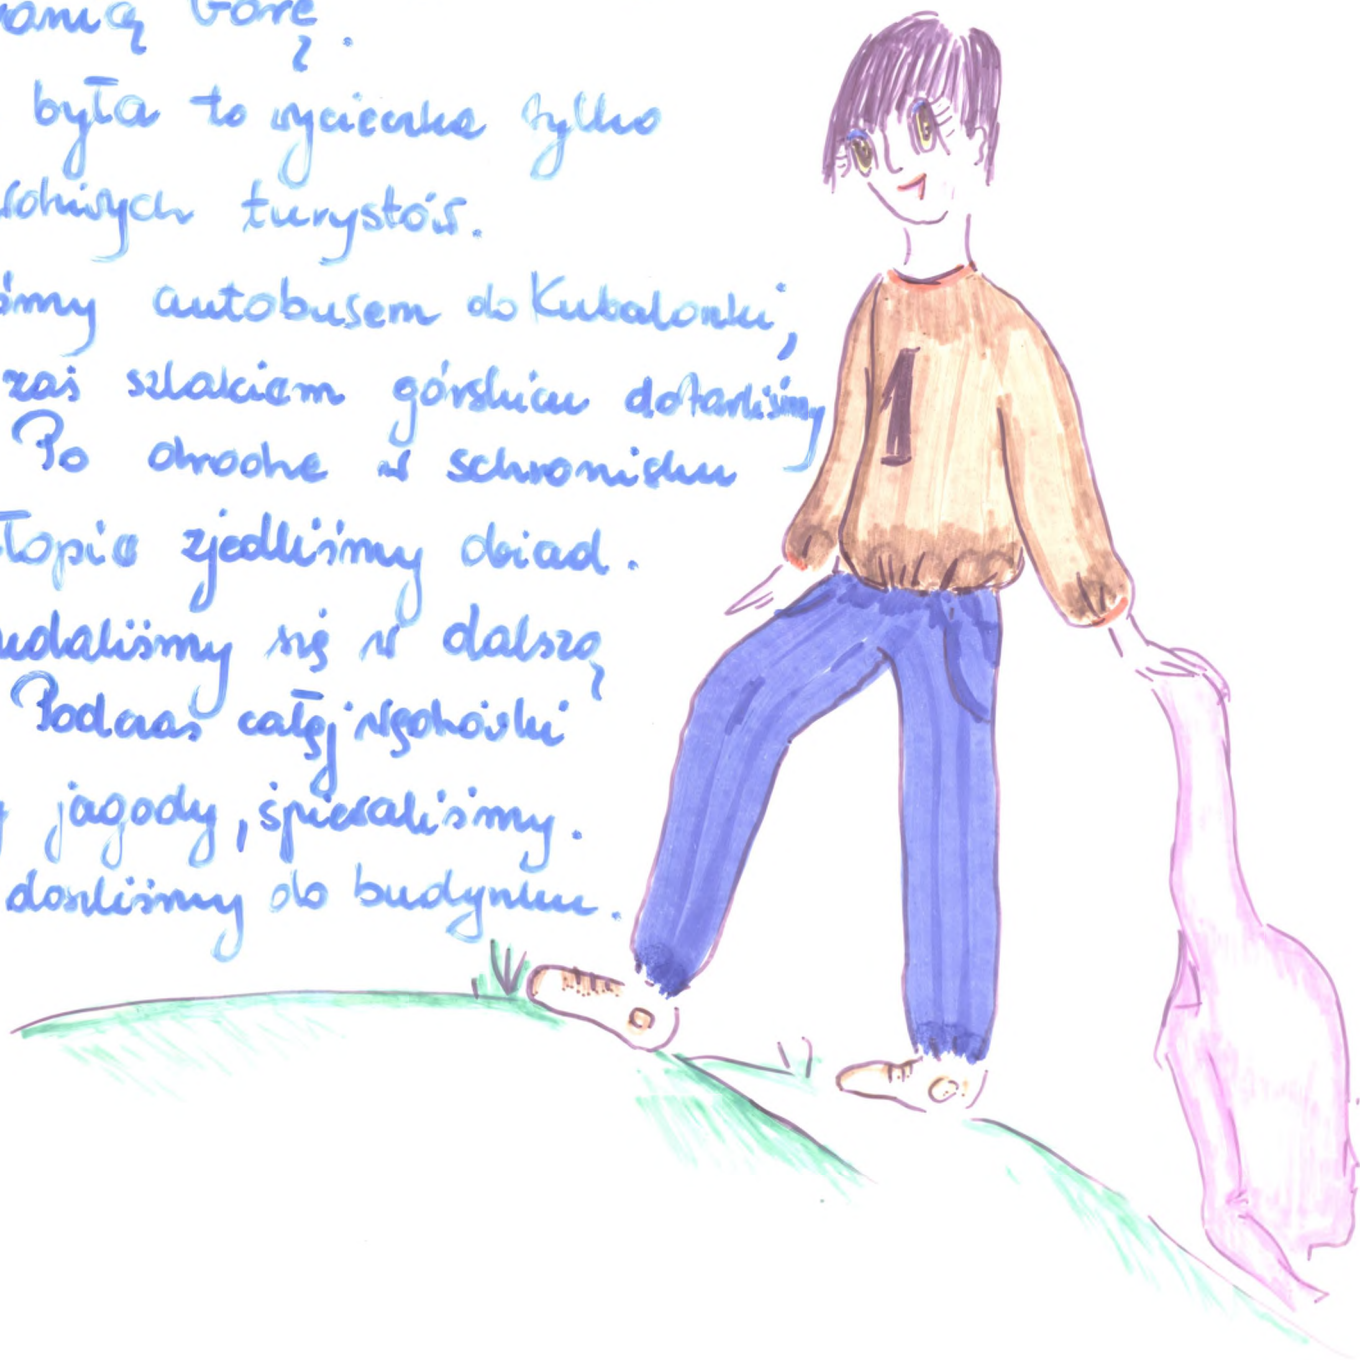 Górę.
była to wycieczka tylko
turystów.
śmy autobusem do Kubalonki,
zaś szlakiem górskim dotarliśmy
Po drodze w schronisku
zjedliśmy obiad.
udaliśmy się w dalszą
Podczas całej wędrówki
jagody, śpiewaliśmy.
doszliśmy do budynku.
1